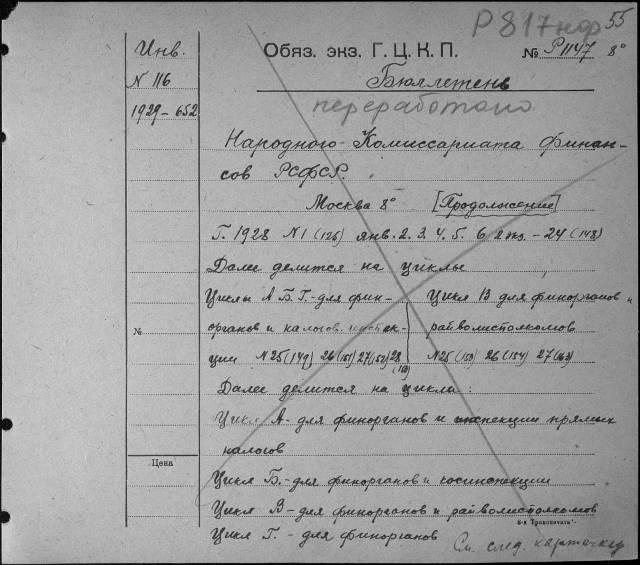 Р 817 нф 55
Инв.
N 116
1929-652
Обяз. экз. Г. Ц. К. П. № Р1147 8°
Бюллетень
переработано
Народного Комиссариата Финан-
сов РСФСР.
Москва 8° [Продолжение]
Г. 1928 N1 (125) янв. 2. 3. 4. 5. 6 - 24 (148)
Далее делится на циклы
Циклы А Б Г-для фин-
органов и налогов. инспек-
ции N25 (149) 26 (151) 27 (152) 28
Цикл В для финорганов и
райволисполкомов
N25 (150) 26 (154) 27
Далее делится на циклы:
Цикл А-для финорганов и инспекции прямых
налогов
Цикл Б.-для финорганов и госинспекции
Цикл В-для финорганов и райволисполкомов
Цикл Г.-для финорганов
№
Цена
6-я "Транспечать".
См. след. карточку